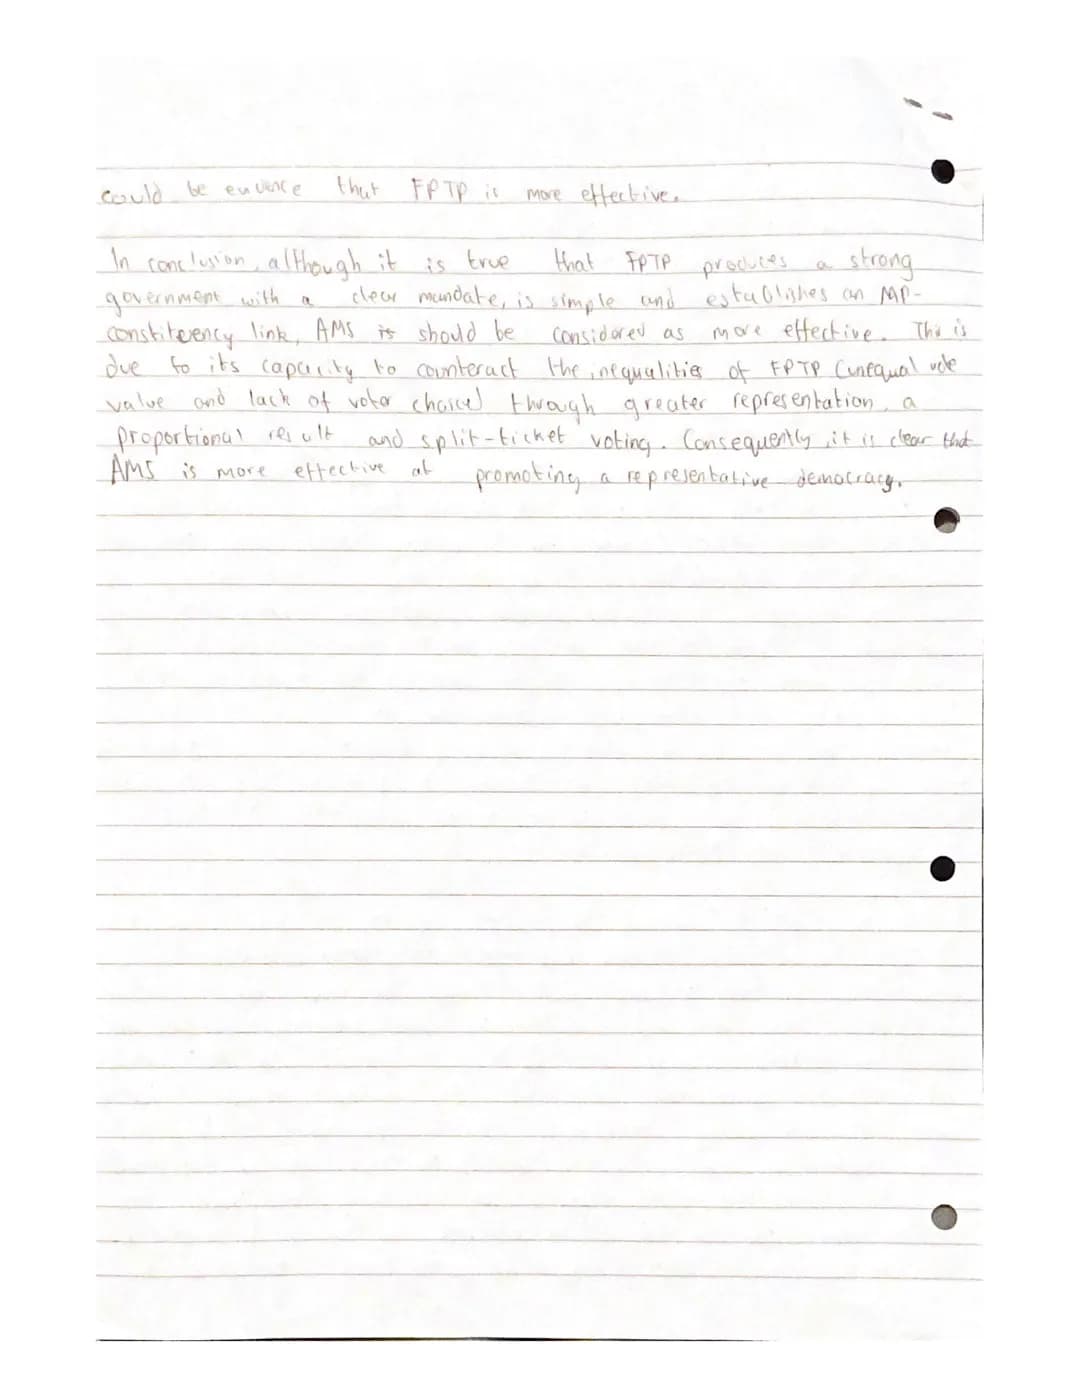 could be euvence that FPTP is more effective.
In conclusion, although it is true that FPTP produces a strong
government with a clear mandate, is simple and establishes an MP-
constituency link, AMS is should be considered as more effective. This is
due to its capacity to counteract the inequalities of FPTP (unequal vote
value and lack of voter choice) through greater representation, a
proportional result and split-ticket voting. Consequently, it is clear that
AMS is more effective at promoting a representative democracy.